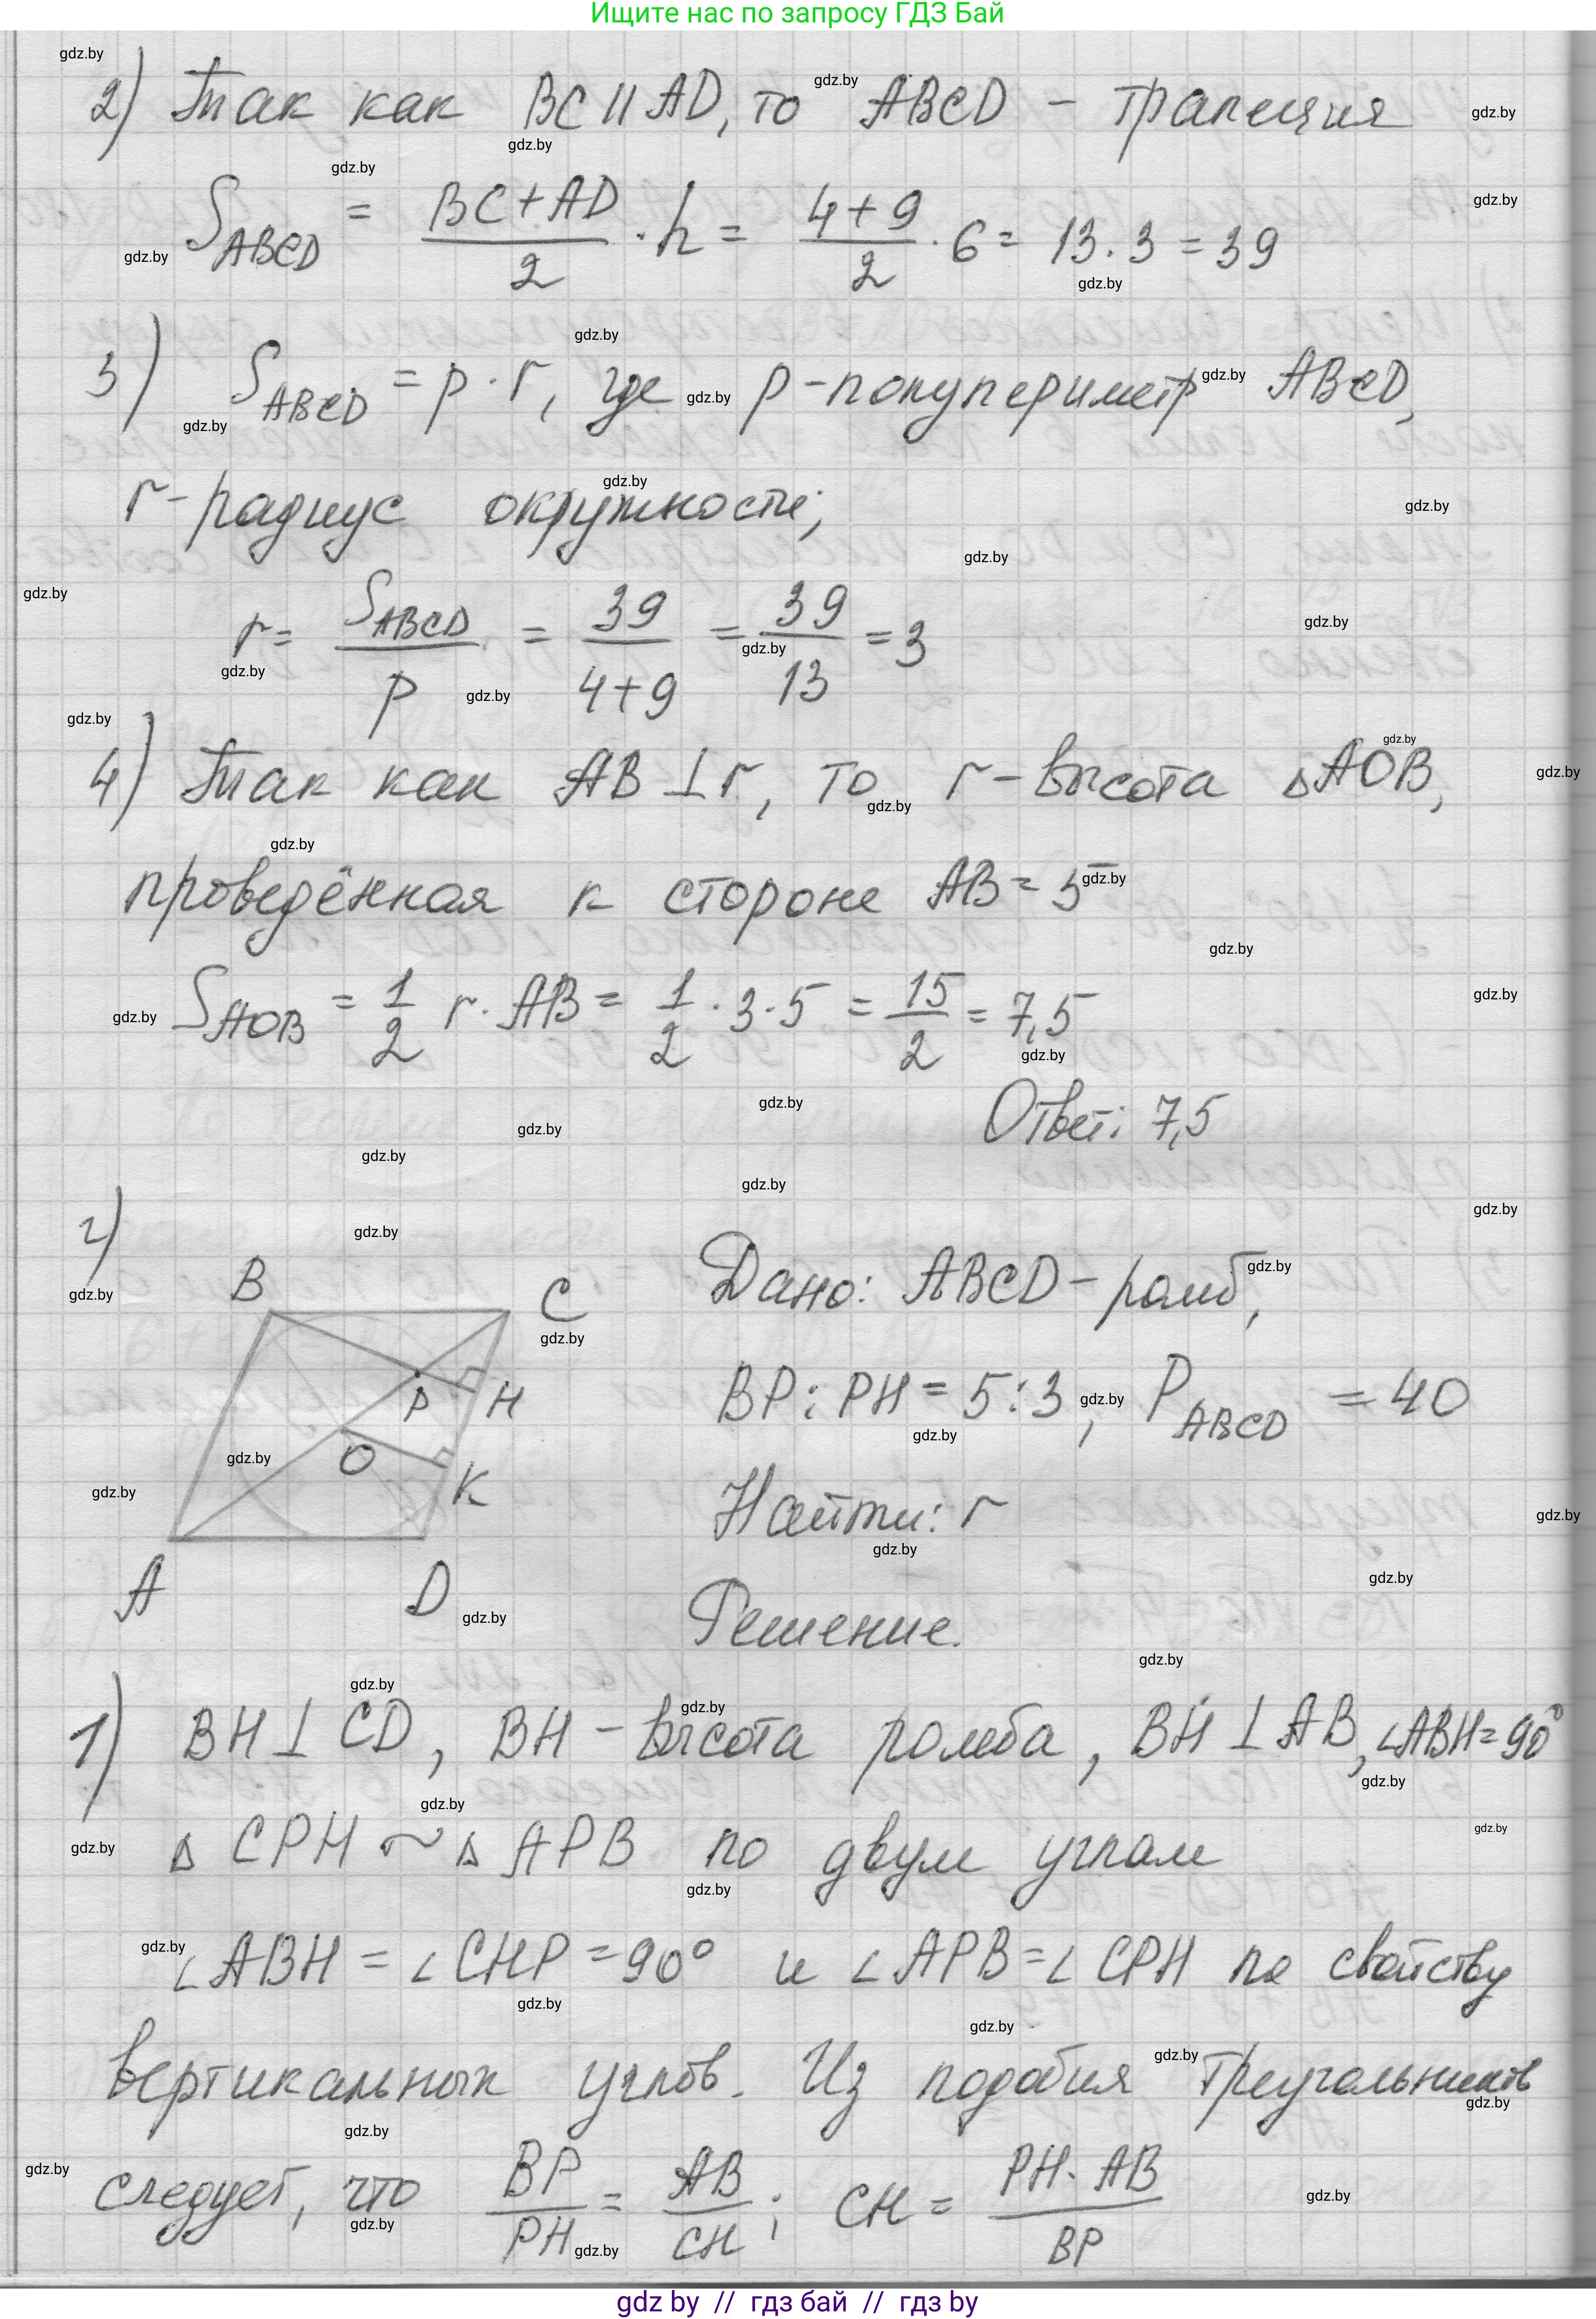 Ищите нас по запросу ГДЗ Бай
2) Так как BC || AD, то ABCD - трапеция
S_ABCD = (BC+AD)/2 · h = (4+9)/2 · 6 = 13 · 3 = 39
3) S_ABCD = p · r, где p-полупериметр ABCD,
r-радиус окружности;
r = S_ABCD/p = 39/(4+9) = 39/13 = 3
4) Так как AB ⊥ r, то r-высота △AOB,
проведённая к стороне AB = 5
S_AOB = 1/2 r · AB = 1/2 · 3 · 5 = 15/2 = 7,5
Ответ: 7,5
г)
B C
P H
O K
A D
Дано: ABCD - ромб,
BP : PH = 5 : 3, P_ABCD = 40
Найти: r
Решение.
1) BH ⊥ CD, BH - высота ромба, BH ⊥ AB, ∠ABH = 90°
△ CPH ~ △ APB по двум углам
∠ABH = ∠CHP = 90° и ∠APB = ∠CPH по свойству
вертикальных углов. Из подобия треугольников
следует, что BP/PH = AB/CH; CH = (PH · AB)/BP
gdz by // гдз бай // гдз by